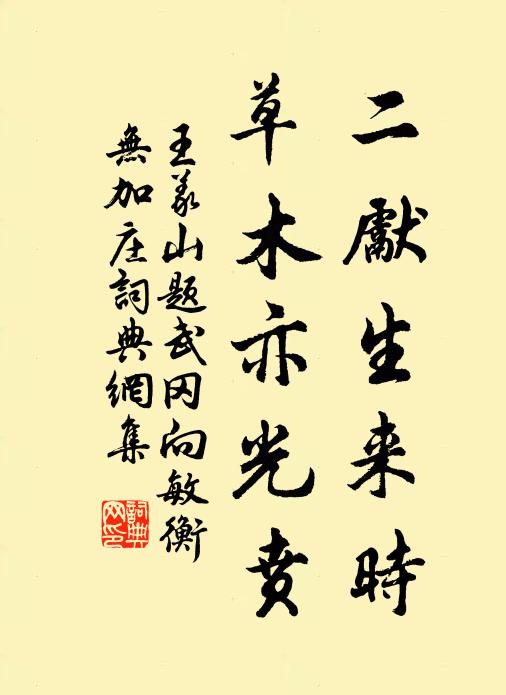 二獻生来時
草木亦光賁
王義山題武冈向敏衡
無加庄詞典網集
詞典
网印